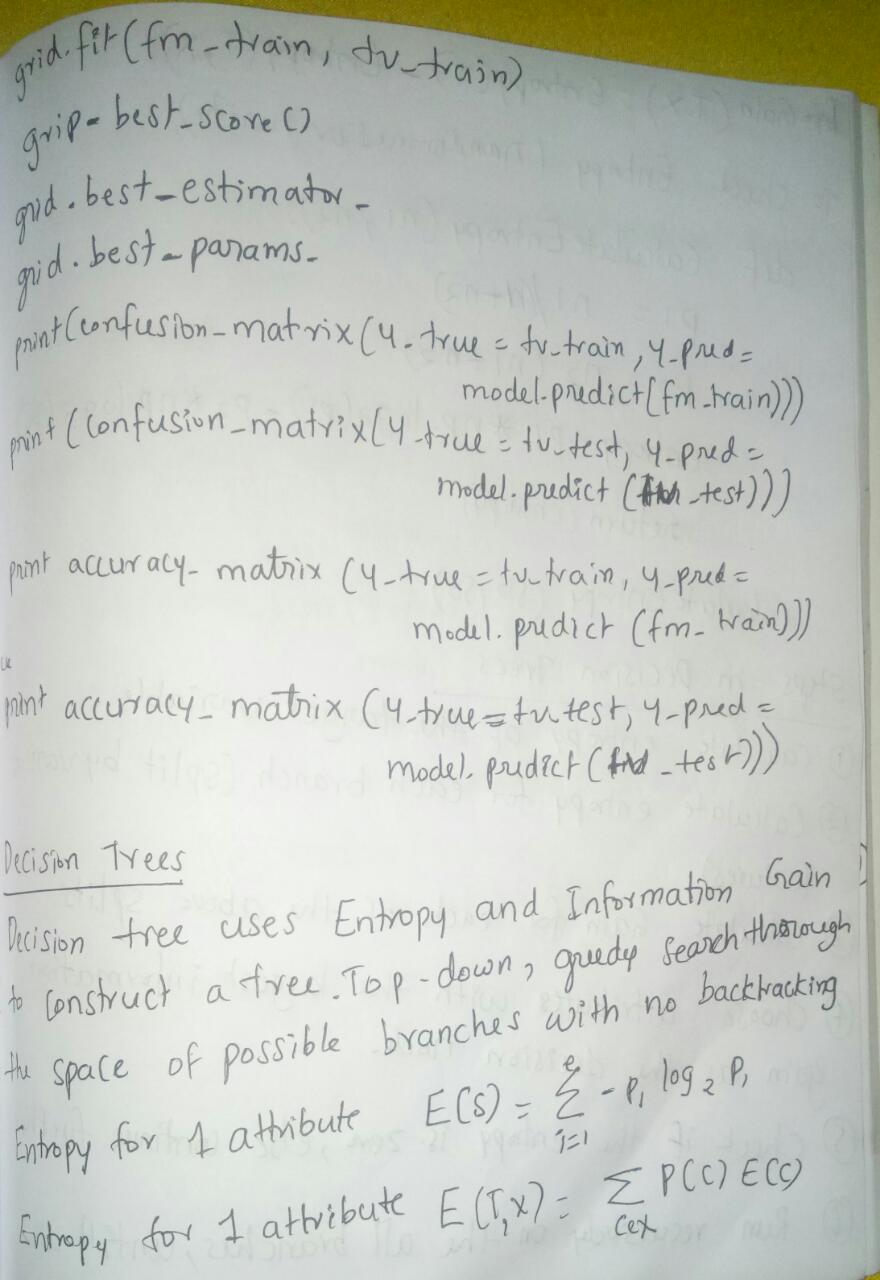 grid.fit(fm_train, tv_train)
grip=best_score()
grid.best_estimator_
grid.best_params_
print(confusion_matrix(y_true = tv_train, y_pred =
model.predict(fm_train)))
print(confusion_matrix(y_true = tv_test, y_pred =
model.predict(_test)))
print accuracy_matrix (y_true = tv_train, y_pred =
model.predict (fm_train)))
print accuracy_matrix (y_true = tv_test, y_pred =
model.predict(_test)))
Decision Trees
Decision tree uses Entropy and Information Gain
to construct a tree. Top-down, greedy search thorough
the space of possible branches with no backtracking
Entropy for 1 attribute E(S) = Σ_{i=1}^{e} - P_i log_2 P_i
Entropy for 1 attribute E(T,X) = Σ_{c∈X} P(C) E(C)